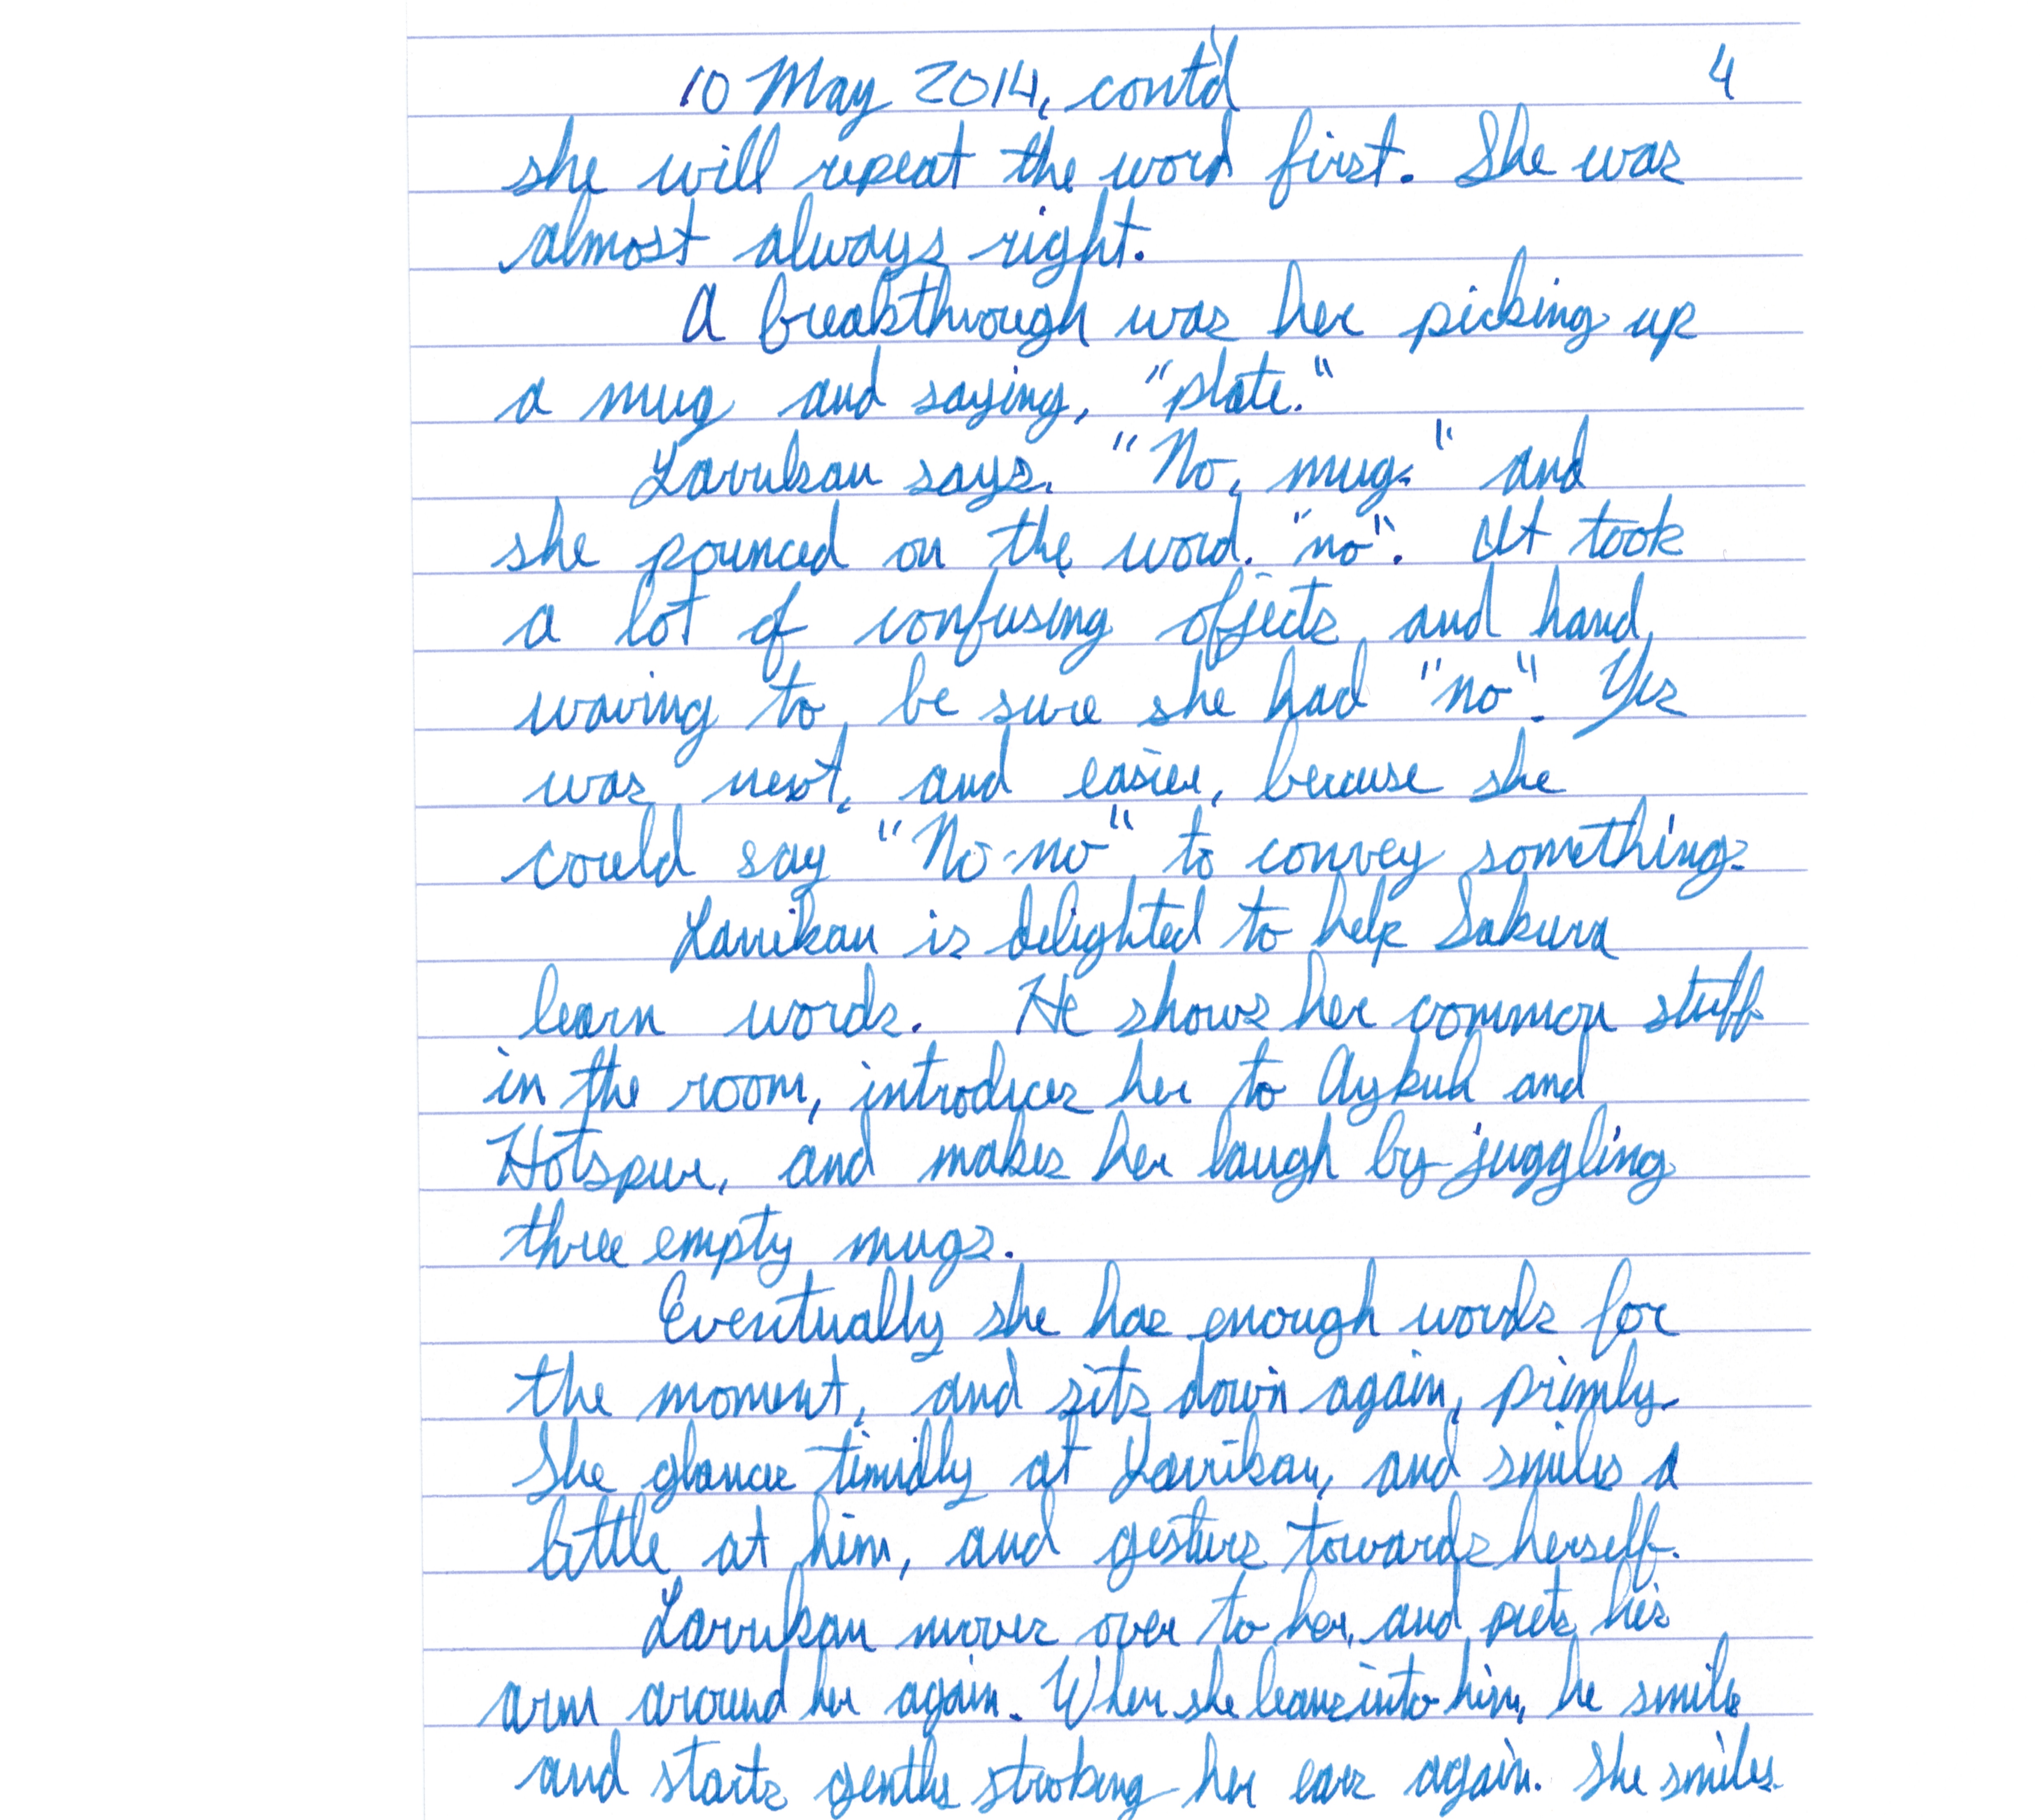 10 May 2014, cont'd 4
she will repeat the word first. She was
almost always right.
A breakthrough was her picking up
a mug and saying, "plate."
Larrikan says, "No, mug." and
she pounced on the word "no". It took
a lot of confusing objects and hand
waving to be sure she had "no". Yes
was next, and easier, because she
could say "No-no" to convey something.
Larrikan is delighted to help Sakura
learn words. He shows her common stuff
in the room, introduces her to Aykuh and
Hotspur, and makes her laugh by juggling
three empty mugs.
Eventually she has enough words for
the moment, and sits down again, primly.
She glances timidly at Larrikan, and smiles a
little at him, and gestures towards herself.
Larrikan moves over to her, and puts his
arm around her again. When she leans into him, he smiles
and starts gently stroking her ears again. She smiles